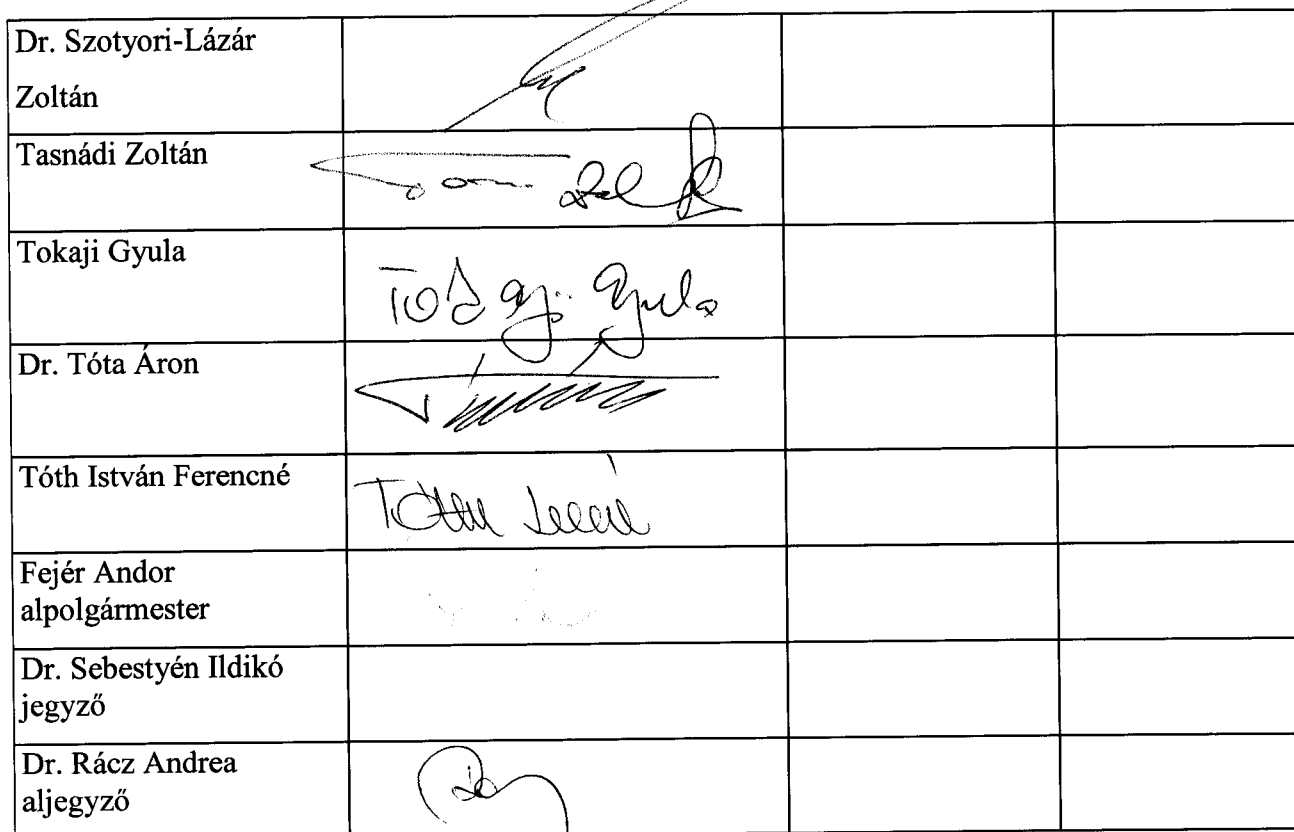 Dr. Szotyori-Lázár
Zoltán
Tasnádi Zoltán
Tokaji Gyula
Tokaji Gyula
Dr. Tóta Áron
Tóth István Ferencné
Tóth
Fejér Andor
alpolgármester
Dr. Sebestyén Ildikó
jegyző
Dr. Rácz Andrea
aljegyző